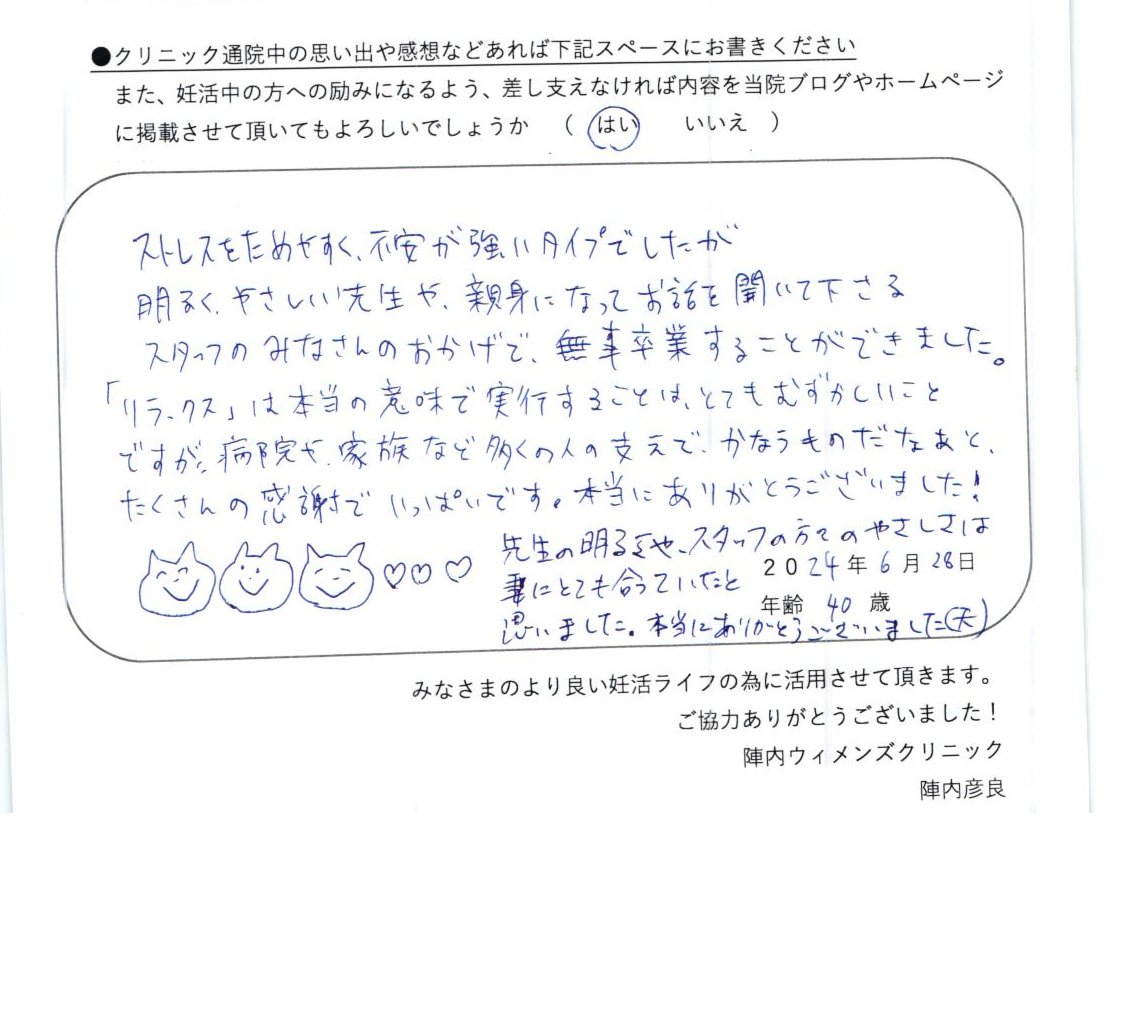 ●クリニック通院中の思い出や感想などあれば下記スペースにお書きください
また、妊活中の方への励みになるよう、差し支えなければ内容を当院ブログやホームページ
に掲載させて頂いてもよろしいでしょうか （ はい いいえ ）
ストレスをためやすく、不安が強いタイプでしたが
明るく、やさしい先生や、親身になってお話を聞いて下さる
スタッフのみなさんのおかげで、無事卒業することができました。
「リラックス」は本当の意味で実行することは、とてもむずかしいこと
ですが、病院や、家族など多くの人の支えで、かなうものだなぁと、
たくさんの感謝でいっぱいです。本当にありがとうございました!
先生の明るさや、スタッフの方々のやさしさは
妻にとても合っていたと
思いました。本当にありがとうございました(夫)
2024年6月28日
年齢 40 歳
みなさまのより良い妊活ライフの為に活用させて頂きます。
ご協力ありがとうございました！
陣内ウィメンズクリニック
陣内彦良